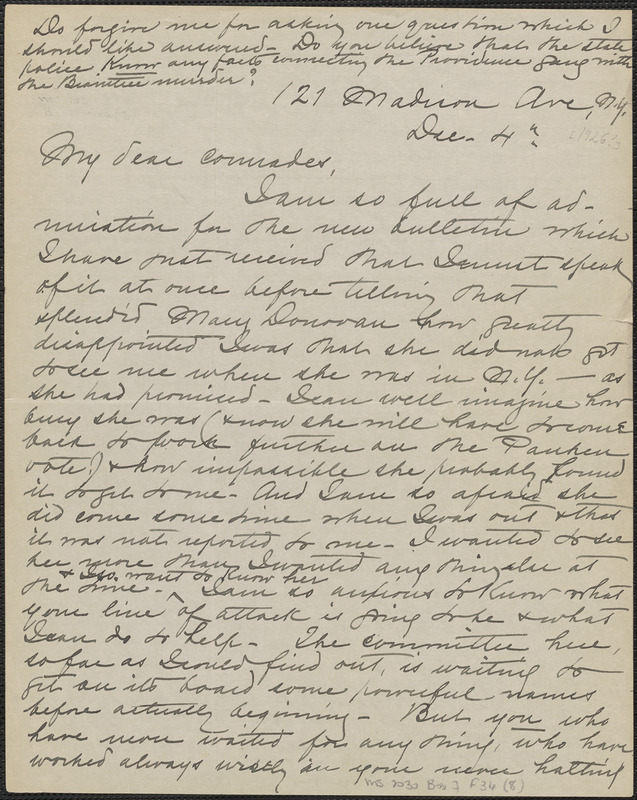 Do forgive me for asking one question which I
should like answered - Do you believe that the state
police know any facts connecting the Providence gang with
the Braintree murder?
121 Madison Ave, N.Y.
Dec - 4th
My dear comrades,
I am so full of ad-
miration for the new bulletin which
I have just received that I must speak
of it at once before telling that
splendid Mary Donovan how greatly
disappointed I was that she did not get
to see me when she was in N.Y. — as
she had promised - I can well imagine how
busy she was (& now she will have to come
back to work further on the Panken
vote) & how impossible she probably found
it to get to me - And I am so afraid she
did come some time when I was out & that
it was not reported to me - I wanted to see
her more than I wanted any thing else at
the time - & I so want to know her I am so anxious to know what
your line of attack is going to be & what
I can do to help - The committee here,
so far as I could find out, is waiting to
get on its board some powerful names
before actually beginning - But you who
have never waited for any thing, who have
worked always wisely in your never halting
MS 2030 Box 7 F34 (8)